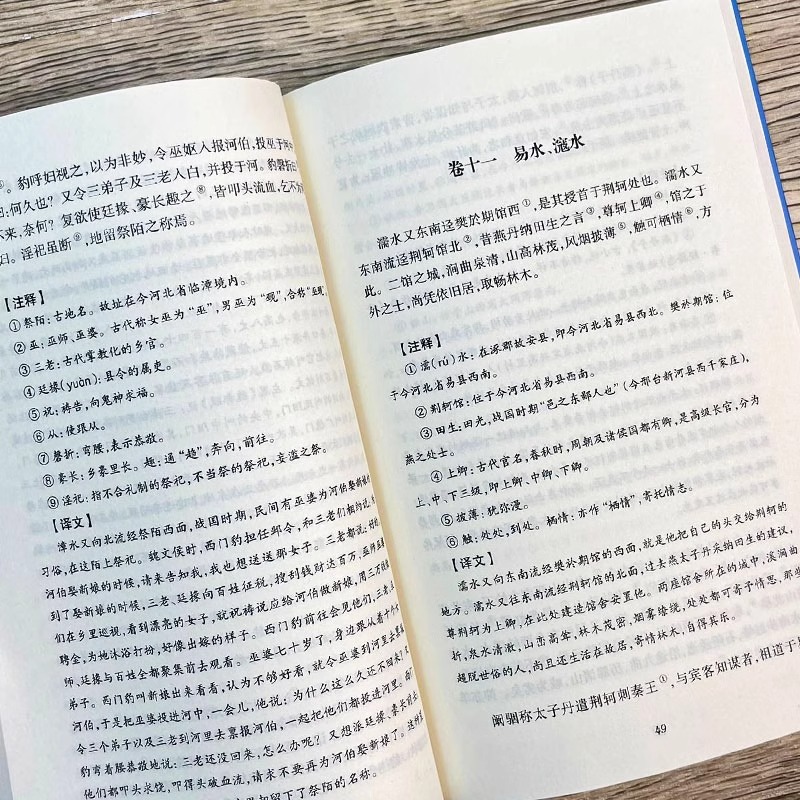 ⑥。豹呼妇视之，以为非妙，令巫妪入报河伯，投巫于河中
曰：何久也？又令三弟子及三老入白，并投于河。豹磬折曰
不来，奈何？复欲使廷掾、豪长趣之⑧，皆叩头流血，乞不为
日。淫祀虽断⑨，地留祭陌之称焉。
【注释】
①祭陌：古地名。故址在今河北省临漳境内。
②巫：巫师、巫婆。古代称女巫为“巫”，男巫为“觋”，合称“巫觋
③三老：古代掌教化的乡官。
④廷掾(yuàn)：县令的属吏。
⑤祝：祷告，向鬼神求福。
⑥从：使跟从。
⑦磬折：弯腰，表示恭敬。
⑧豪长：乡豪里长。趣：通“趋”，奔向，前往。
⑨淫祀：指不合礼制的祭祀，不当祭的祭祀，妄滥之祭。
【译文】
漳水又向北流经祭陌西面，战国时期，民间有巫婆为河伯娶新娘
习俗，在这陌上祭祀。魏文侯时，西门豹担任邺令，和三老们相约
河伯娶新娘的时候，请来告知我，我也想送送那女子。三老都说：好
到了娶新娘的时候，三老、廷掾向百姓征税，搜刮钱财达百万，巫师
们在乡里巡视，看到漂亮的女子，就祝祷说应给河伯做新娘，用三万钱
聘金，为她沐浴打扮，好像出嫁的样子。西门豹前往会见他们，三老、
师、廷掾与百姓全都聚集前去观看。巫婆七十岁了，身边跟从着十个
弟子。西门豹叫新娘出来看看，认为不够好看，就令巫婆到河里去禀
河伯，于是把巫婆投进河中，一会儿，他说：为什么这么久还不回来？又
令三个弟子以及三老到河里去禀报河伯，一起把他们都投进河里。西门
豹弯着腰恭敬地说：三老还没回来，怎么办呢？又想派廷掾、豪长前去
他们都叩头求饶，叩得头破血流，请求不要再为河伯娶新娘了。这种
留下了祭陌的名称。
卷十一　易水、滱水
濡水又东南迳樊於期馆西①，是其授首于荆轲处也。濡水又
东南流迳荆轲馆北②，昔燕丹纳田生之言③，尊轲上卿④，馆之于
此。二馆之城，涧曲泉清，山高林茂，风烟披薄⑤，触可栖情⑥，方
外之士，尚凭依旧居，取畅林木。
【注释】
①濡(rú)水：在涿郡故安县，即今河北省易县西北。樊於期馆：位
于今河北省易县西南。
②荆轲馆：位于今河北省易县西南。
③田生：田光，战国时期“邑之东鄙人也”（今邢台新河县西千家庄），
燕之处士。
④上卿：古代官名，春秋时，周朝及诸侯国都有卿，是高级长官，分为
上、中、下三级，即上卿、中卿、下卿。
⑤披薄：犹弥漫。
⑥触：处处，到处。栖情：亦作“栖情”，寄托情志。
【译文】
濡水又向东南流经樊於期馆的西面，就是他把自己的头交给荆轲的
地方。濡水又往东南流经荆轲馆的北面，过去燕太子丹采纳田生的建议，
尊荆轲为上卿，在此处建造馆舍安置他。两座馆舍所在的城中，溪涧曲
折，泉水清澈，山峦高耸，林木茂密，烟雾缭绕，处处都可寄予情思，那些
超脱世俗的人，尚且还生活在故居，寄情林木，自得其乐。
阚骃称太子丹遣荆轲刺秦王①，与宾客知谋者，祖道于
49